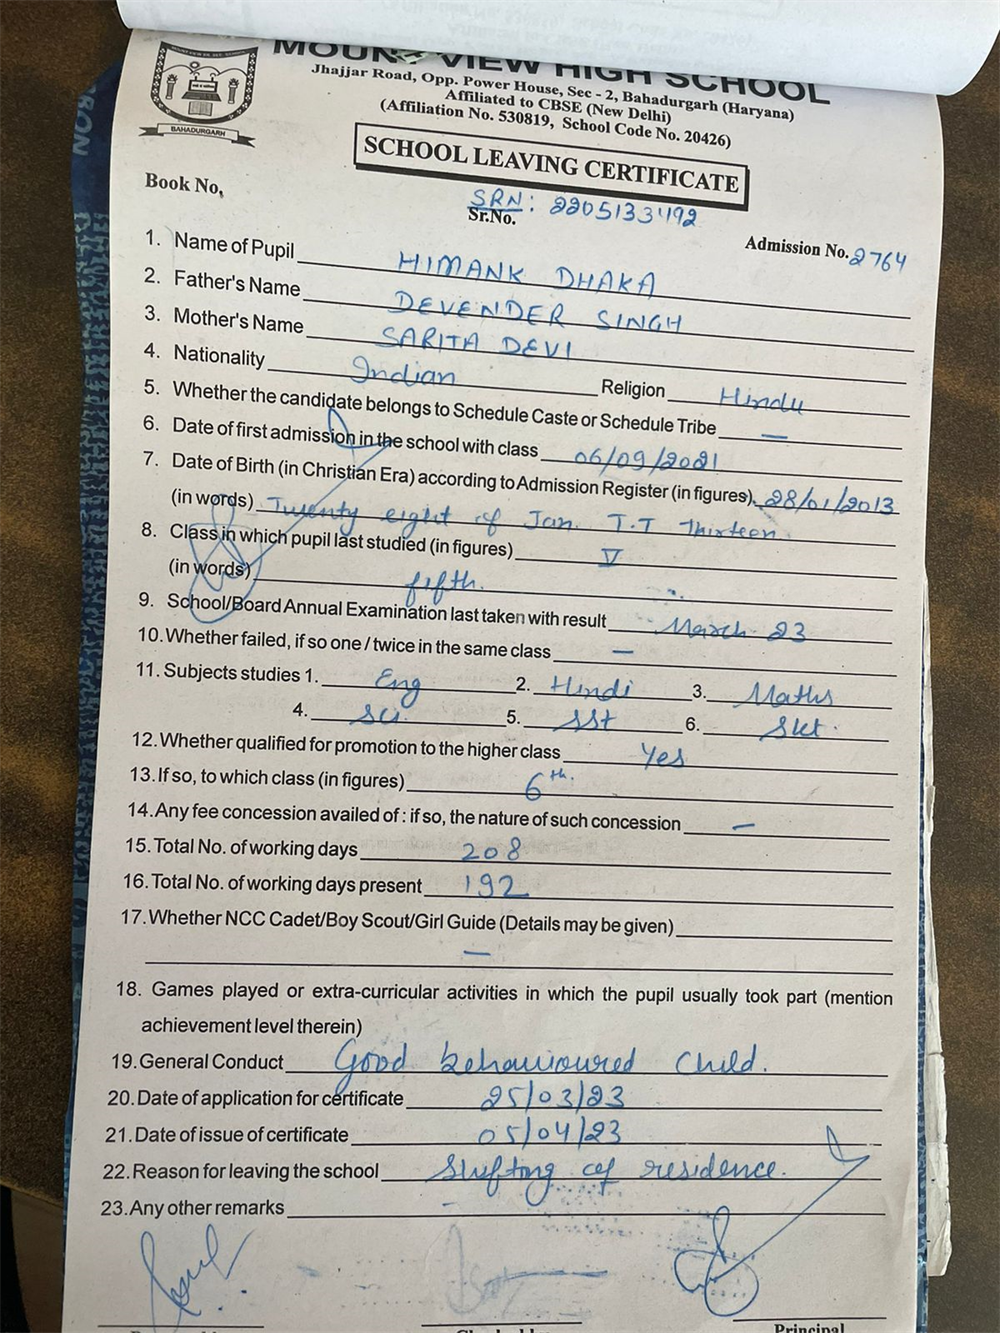 MOUNT VIEW HIGH SCHOOL
Jhajjar Road, Opp. Power House, Sec - 2, Bahadurgarh (Haryana)
Affiliated to CBSE (New Delhi)
(Affiliation No. 530819, School Code No. 20426)
BAHADURGARH
SCHOOL LEAVING CERTIFICATE
Book No,
SRN: 2205133492
Sr.No.
Admission No. 2764
1. Name of Pupil HIMANK DHAKA
2. Father's Name DEVENDER SINGH
3. Mother's Name SARITA DEVI
4. Nationality Indian Religion Hindu
5. Whether the candidate belongs to Schedule Caste or Schedule Tribe —
6. Date of first admission in the school with class 06/09/2021
7. Date of Birth (in Christian Era) according to Admission Register (in figures). 28/01/2013
(in words) Twenty eight of Jan. T.T Thirteen
8. Class in which pupil last studied (in figures) V
(in words) fifth.
9. School/Board Annual Examination last taken with result March 23
10. Whether failed, if so one / twice in the same class —
11. Subjects studies 1. Eng 2. Hindi 3. Maths
4. Sci. 5. SSt 6. Skt.
12. Whether qualified for promotion to the higher class Yes
13. If so, to which class (in figures) 6th.
14. Any fee concession availed of : if so, the nature of such concession —
15. Total No. of working days 208
16. Total No. of working days present 192
17. Whether NCC Cadet/Boy Scout/Girl Guide (Details may be given)
—
18. Games played or extra-curricular activities in which the pupil usually took part (mention
achievement level therein)
19. General Conduct Good behavioured Child.
20. Date of application for certificate 25/03/23
21. Date of issue of certificate 05/04/23
22. Reason for leaving the school Shifting of residence.
23. Any other remarks -
Principal